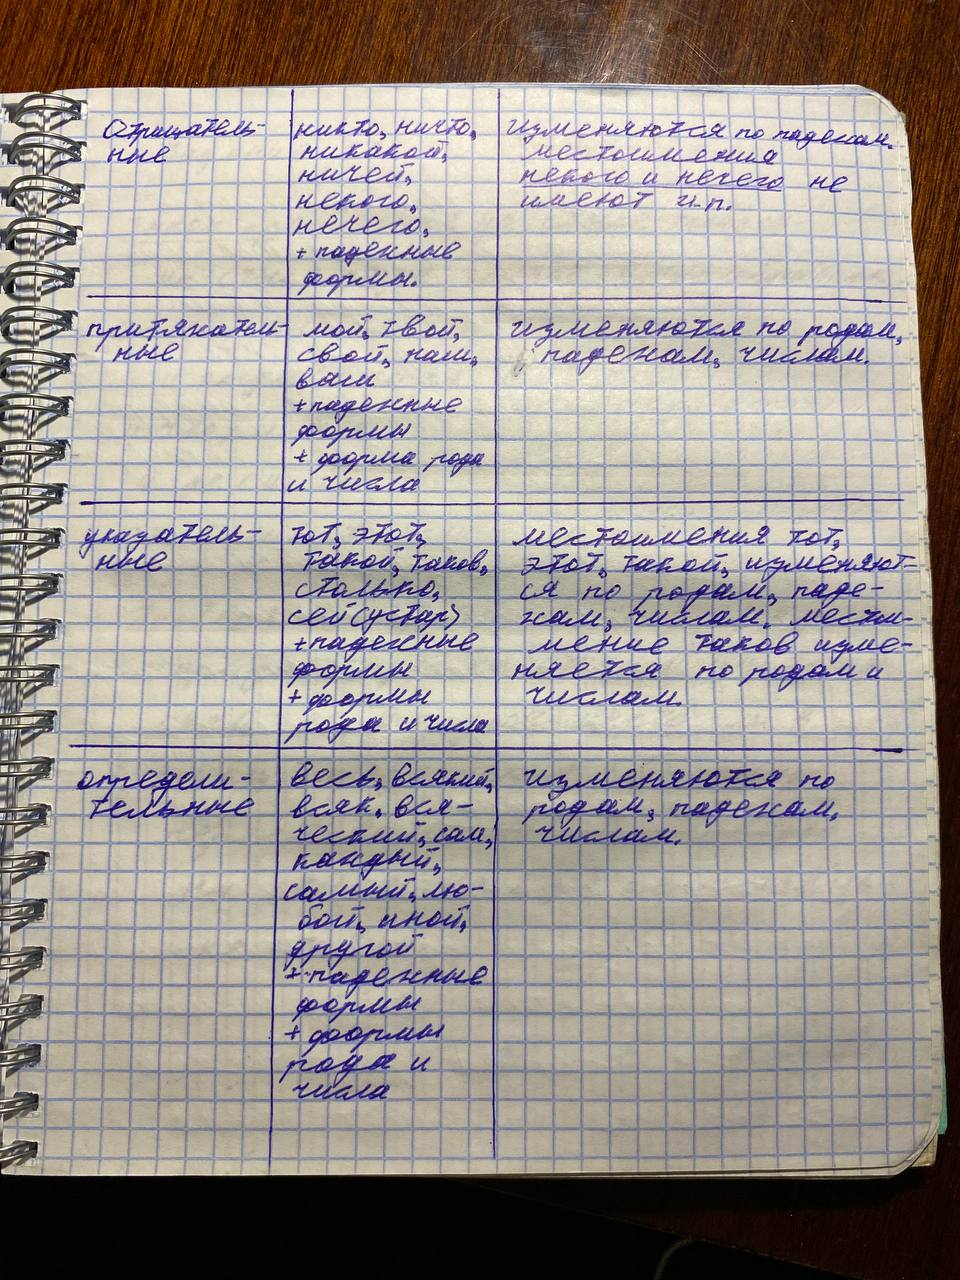 Отрицатель-
ные
никто, ничто,
никакой,
ничей,
некого,
нечего,
+ падежные
формы.
изменяются по падежам.
местоимения
некого и нечего не
имеют и.п.
притяжатель-
ные
мой, твой,
свой, наш,
ваш
+ падежные
формы
+ форма рода
и числа
изменяются по родам,
падежам, числам.
указатель-
ные
тот, этот,
такой, таков,
столько,
сей (устар)
+ падежные
формы
+ формы
рода и числа
местоимения тот,
этот, такой, изменяют-
ся по родам, паде-
жам, числам. местои-
мение таков изме-
няется по родам и
числам.
определи-
тельные
весь, всякий,
всяк, вся-
ческий, сам,
каждый,
самый, лю-
бой, иной,
другой
+ падежные
формы
+ формы
рода и
числа
изменяются по
родам, падежам,
числам.